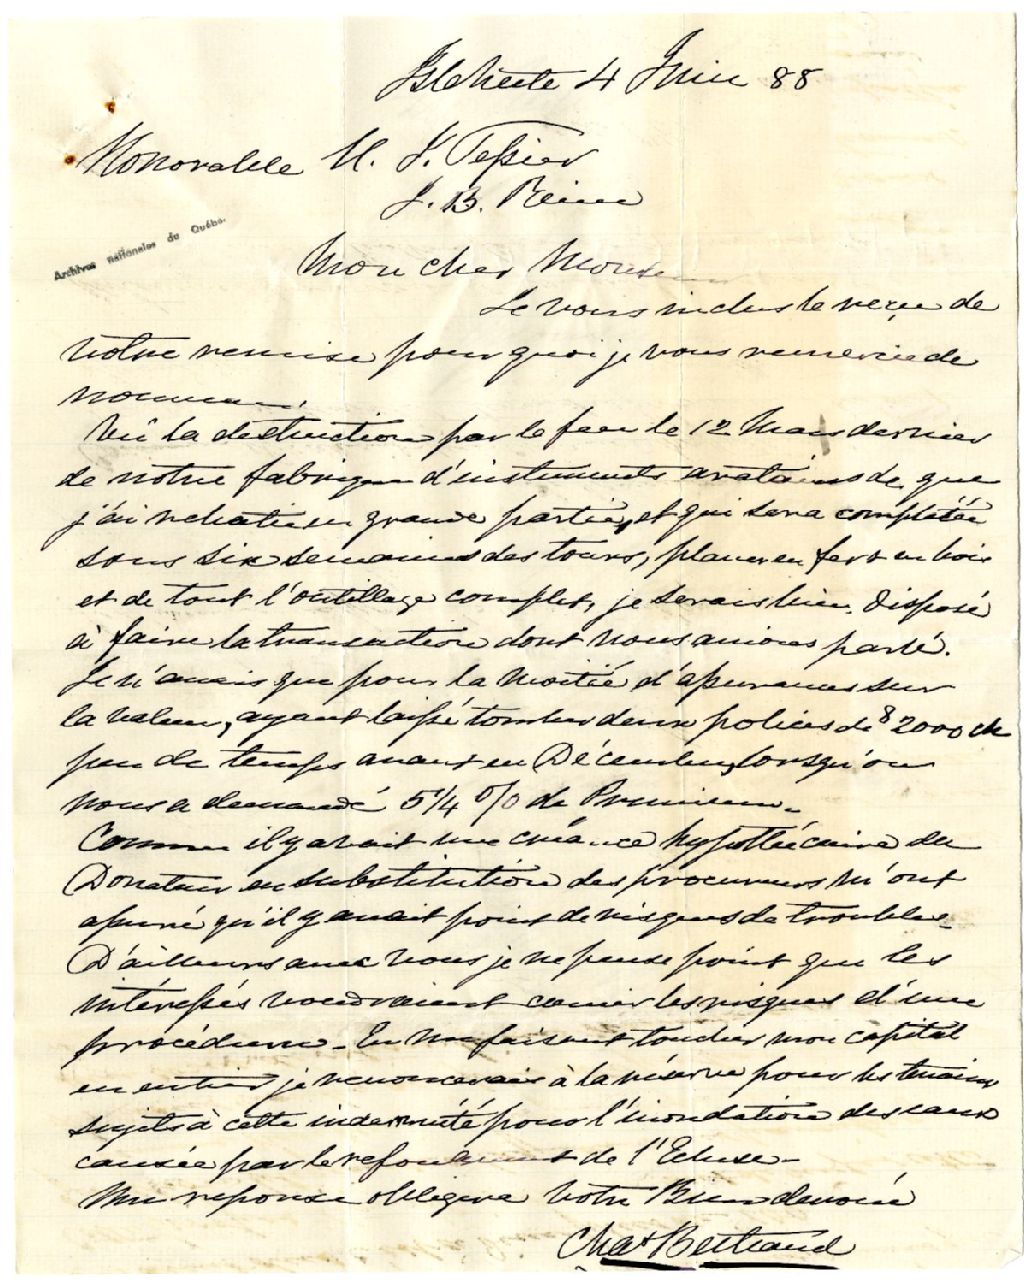 Isle Verte 4 Juin 88
Honorable U. J. Teſsier
J. B. Reine
Archives nationales du Québec
Mon cher Monsieur
Je vous inclus le reçu de
votre remise pour quoi je vous remercie de
nouveau.
Vû la destruction par le feu le 12 Mars dernier
de notre fabrique d'instruments aratoires de que
j'ai rebatie en grande partie, et qui sera complétée
sous six semaines des tours, planer en fer & en bois
et de tout l'outillage complet, je serais bien disposé
à faire la transaction dont nous avions parlé.
Je n'avais que pour la Moitié d'aſsurances sur
la valeur, ayant laiſsé tomber deux polices de $2000 ch
peu de temps avant en Décembre, lorsqu'on
nous a demandé 5 1/4 o/o de Premium.
Comme il y avait une créance hypothécaire du
Donateur en substitution des procureurs m'ont
aſsuré qu'il y avait point de risques de troubles.
D'ailleurs avec vous je ne pense point que les
intéreſsés voudraient courir les risques d'une
procédure. En me faisant toucher mon capital
en entier je renoncerais à la réserve pour les terrains
sujets à cette indemnité pour l'inondation des eaux
causée par le refoulement de l'Ecluse.
Une reponse obligera Votre Bien devoué
Chas Bertrand